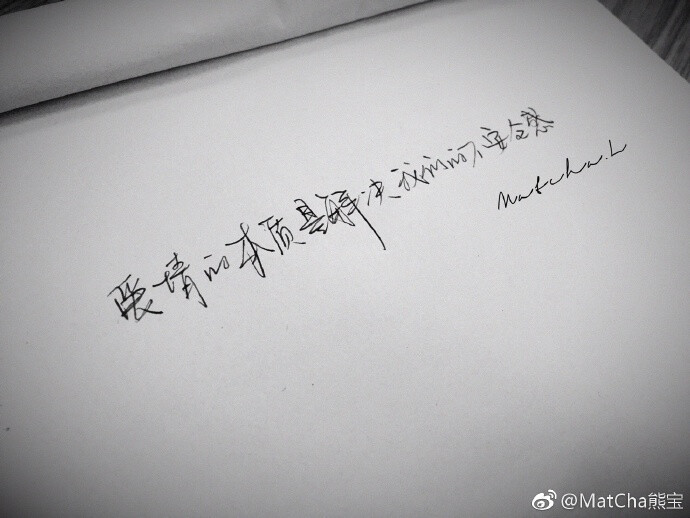 爱情的本质是解决我们的不安全感
Matcha.L
@MatCha熊宝